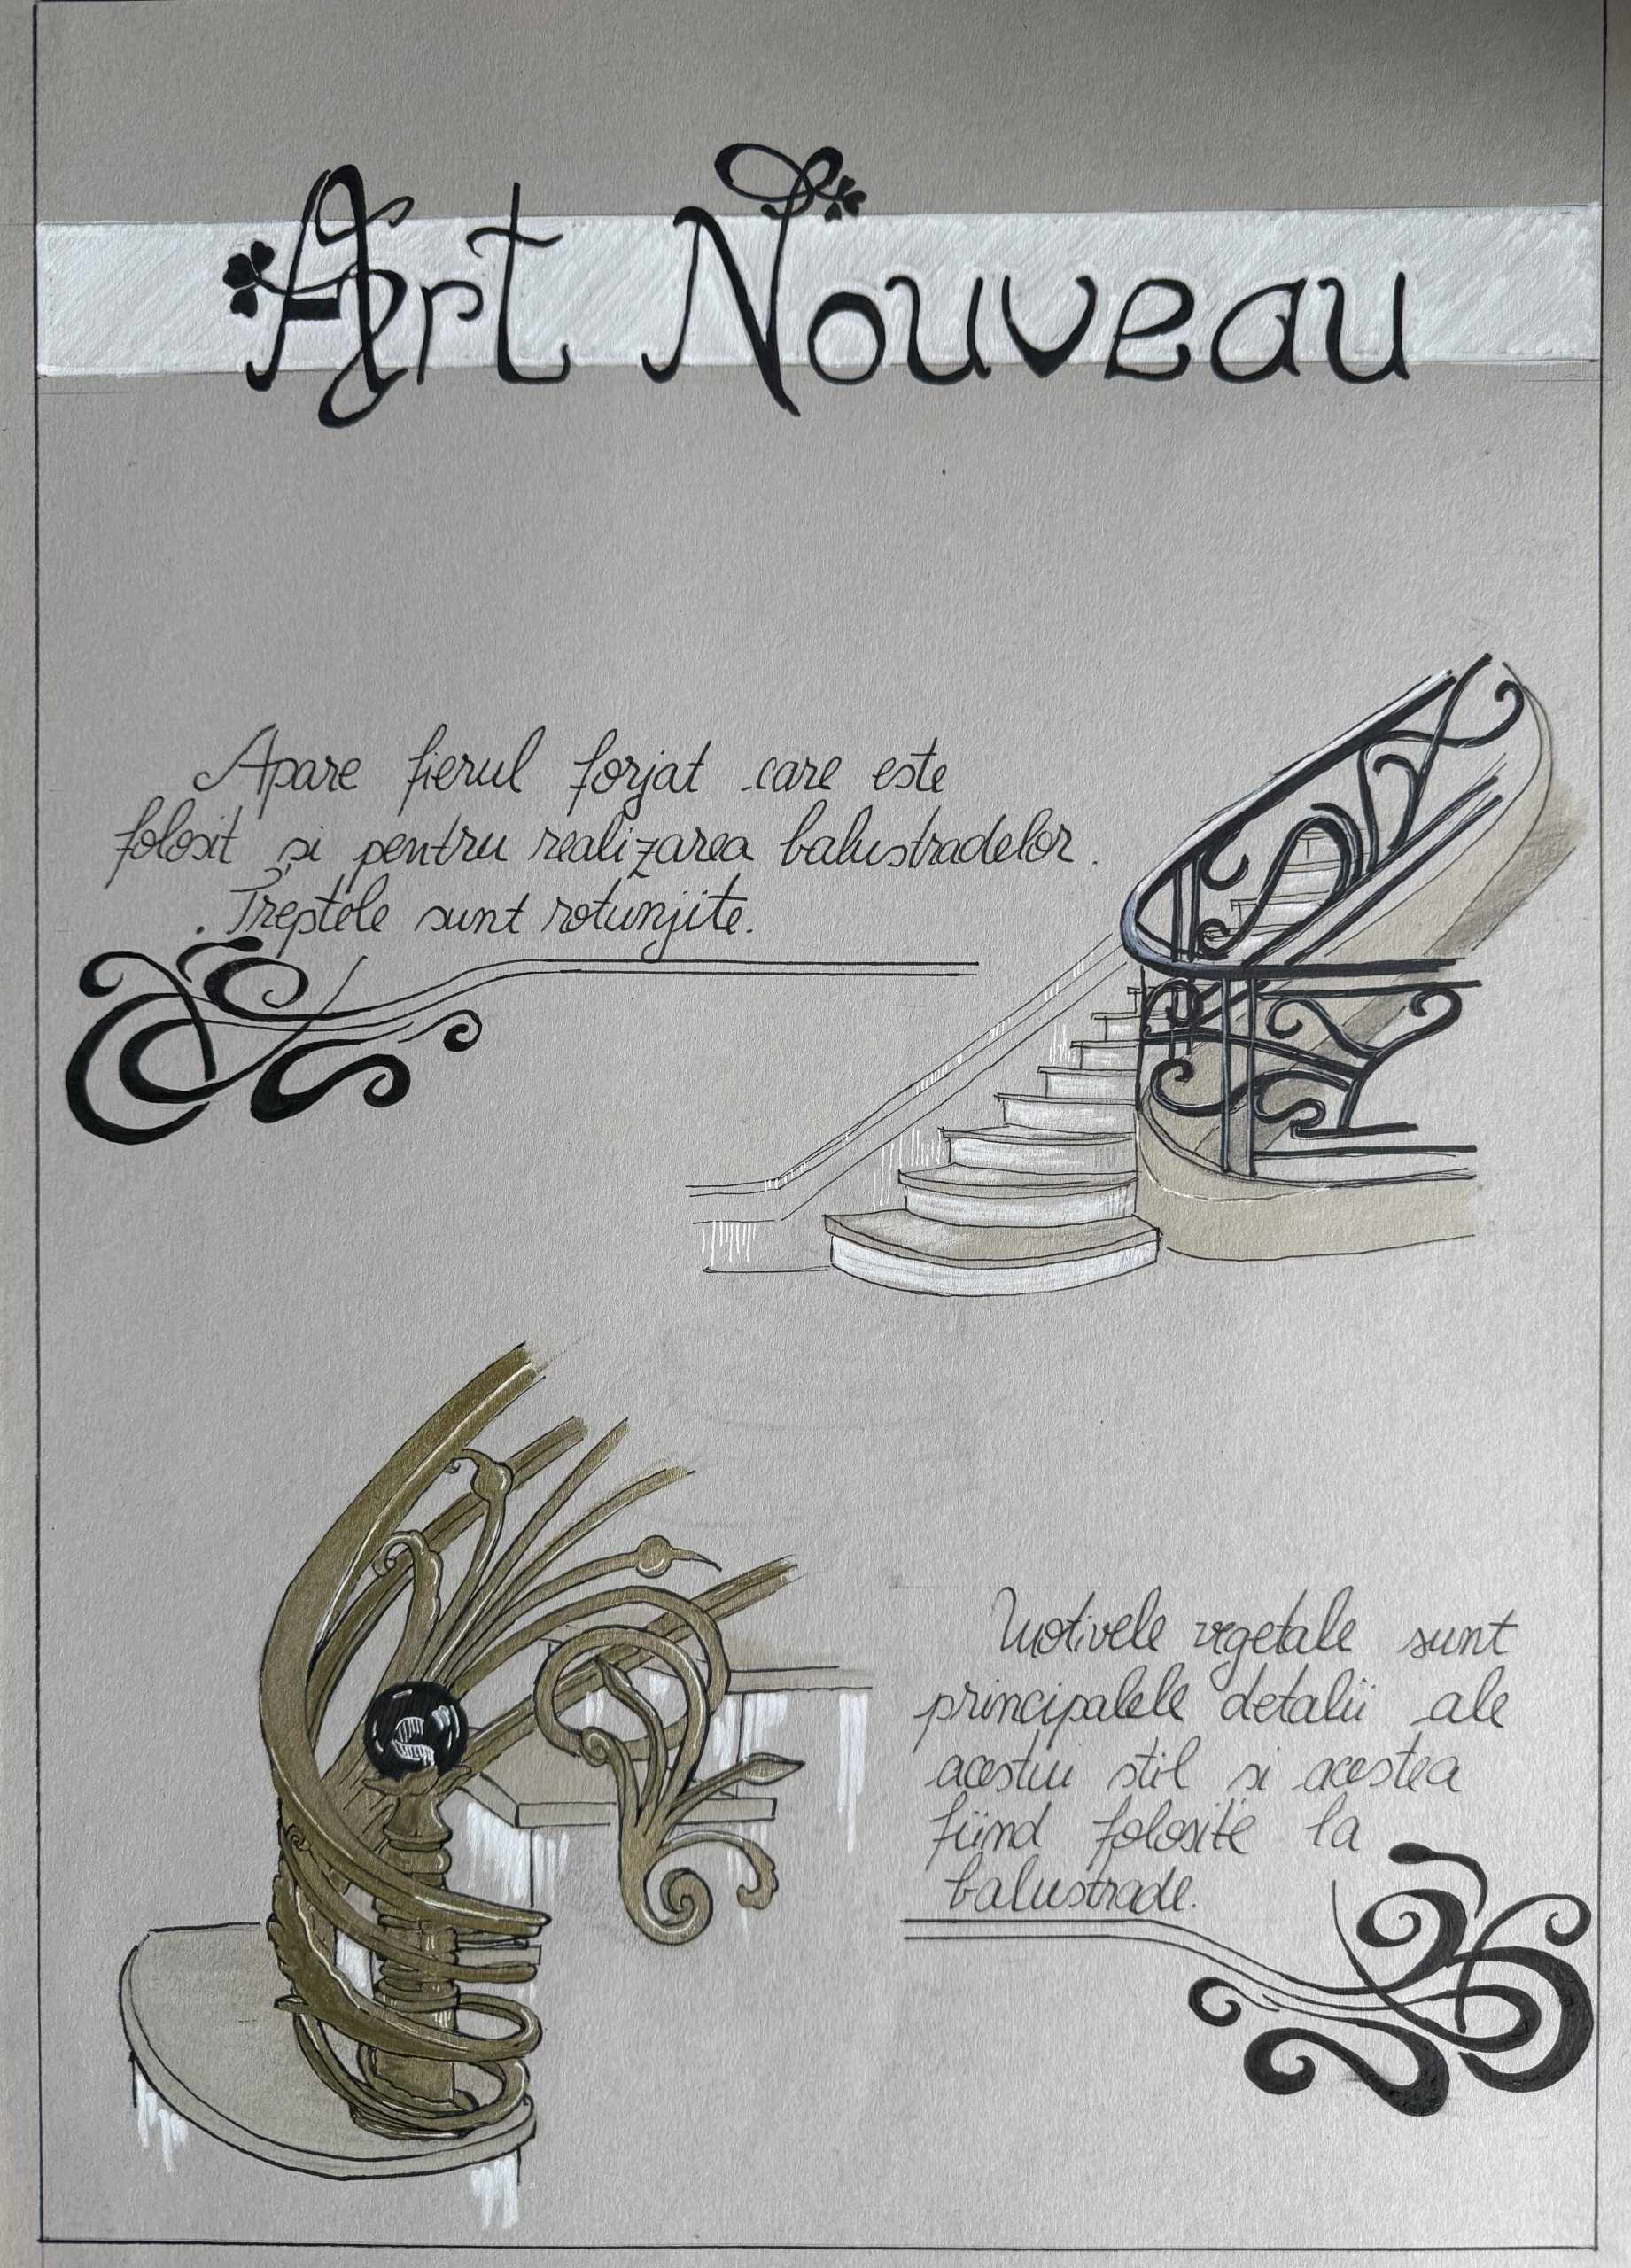 Art Nouveau
Apare fierul forjat care este
folosit și pentru realizarea balustradelor.
. Treptele sunt rotunjite.
Motivele vegetale sunt
principalele detalii ale
acestui stil si acestea
fiind folosite la
balustrade.